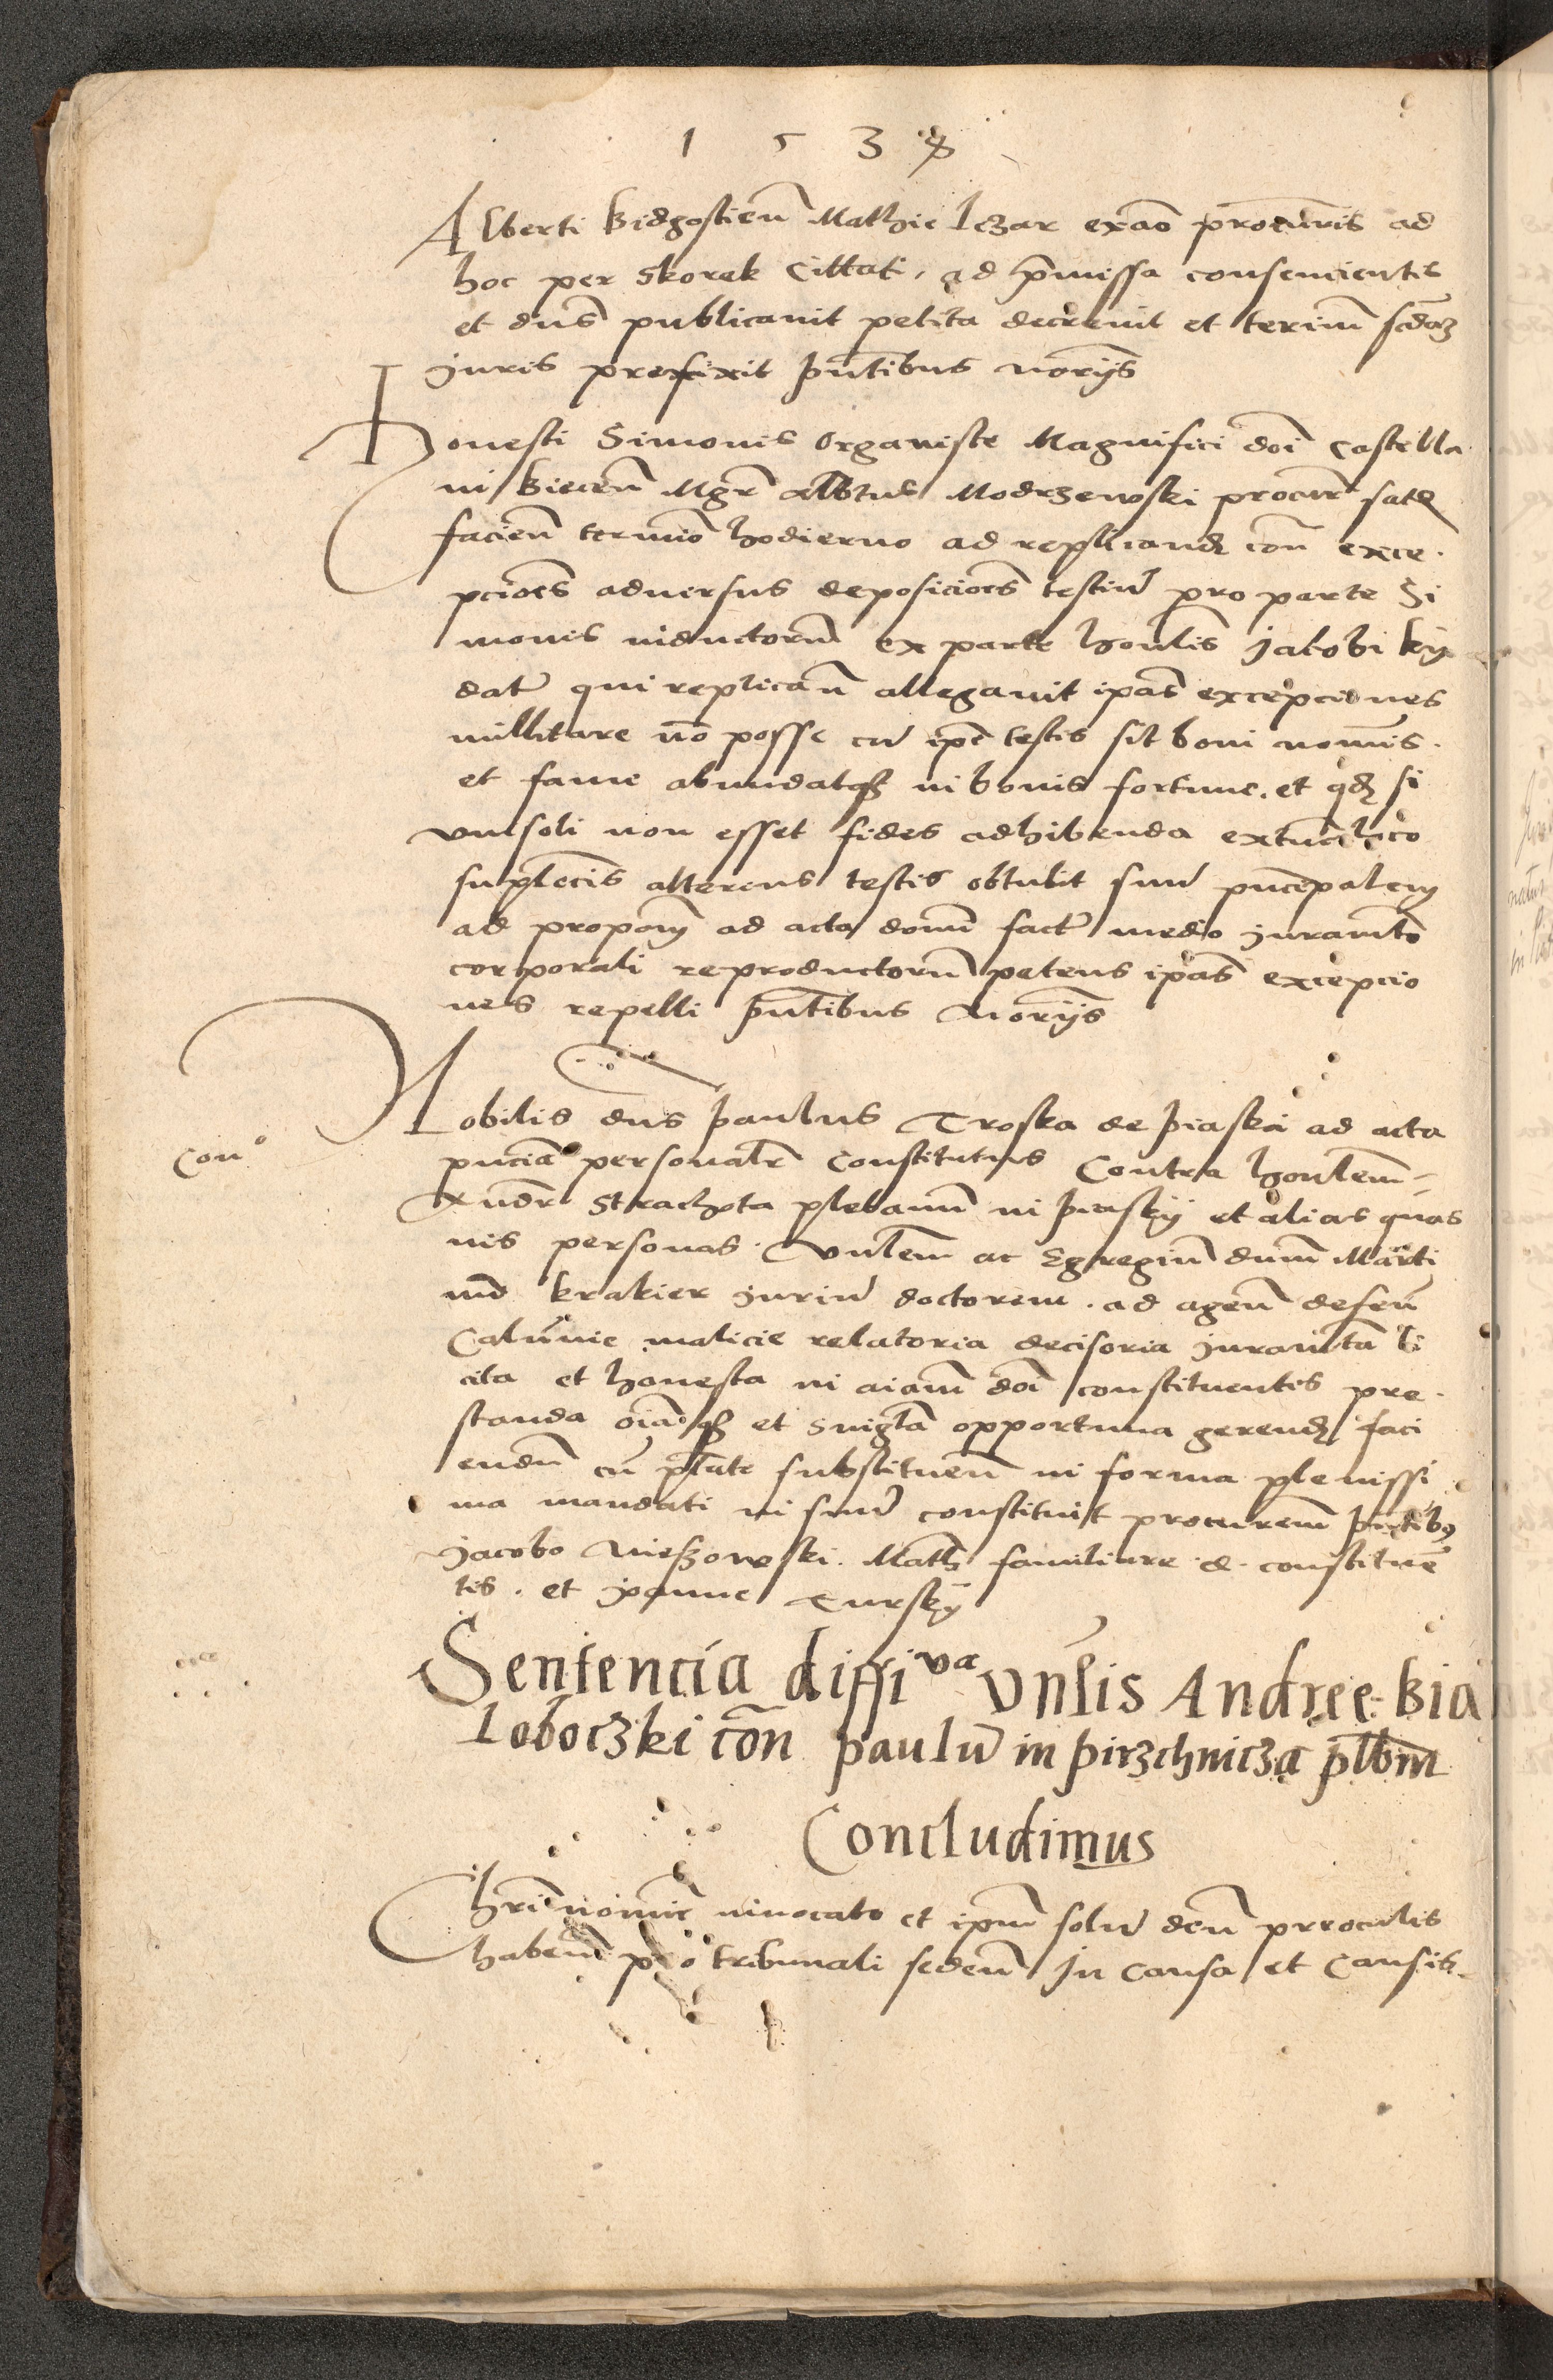 1 5 3 8
Alberti Bidgostien Mathie Iczar ex ad͞o procuris ad
hoc per Skorek Cittati, ad p͞missa consencientis
et dn͞s publicavit petita decrevit et termi͞n sc͞daz
juris prefixit pn͞tibus no͞rijs
Honesti Simonis Organiste Magnifici do͞i Castella
ni Biece͞n Mg͞r Albtus Modrzewski procur͞ satis
facien͞ termi͞o hodierno ad replicand con͞ exce
pcio͞es adversus deposicio͞es testiu͞ pro parte Si
monis inductoru͞ ex parte honlis Jacobi ky
dat͞ qui replican͞ allegavit ip͞as excepciones
millitare no͞ posse cu͞ ip͞e testis sit boni nom͞is
et fame abundatq in bonis fortune. et q͞d si
uni soli non esset fides adhibenda extunc loco
suplecio͞is alterius testis obtulit suu͞ p͞ncipalem
ad propo͞ni ad acta do͞ni fact͞ medio jurame͞to
corporali reproductoru͞ petens ip͞as excepcio
nes repelli pn͞tibus No͞rijs
Nobilis dn͞s Paulus Troska de Piaski ad acta
Con°
pn͞cia personal͞r Constitutus Contra honlem
And͞r Strachota plebanum in Piasky et alias quas
vis personas. Vn͞lem ac Egregiu͞ dnu͞m Marti
nu͞ Krakier juriu͞ doctorem. ad agen͞ defen͞
Calu͞nie malicie relatoria decisoria jurame͞ta li
cita et honesta in ai͞am do͞i constituentis pre
standa o͞iaq et singl͞a opportuna gerend faci
endu͞ cu͞ p͞tate substituen͞ in forma plenissi
ma mandati in suu͞ constituit procurem͞ pn͞tib9
Jacobo Nieszowski. Math familiare d. constitue͞
tis. et Joanne Tursky
Sentencia diffi^va Vn͞lis Andree Bia
loboczki co͞n paulu͞ in pirzchnicza pl͞bm
Concludimus
Chri͞ nomi͞e invocato et ip͞m solu͞ deu͞ preoculis
haben͞ pro tribunali seden͞ In causa et Causis